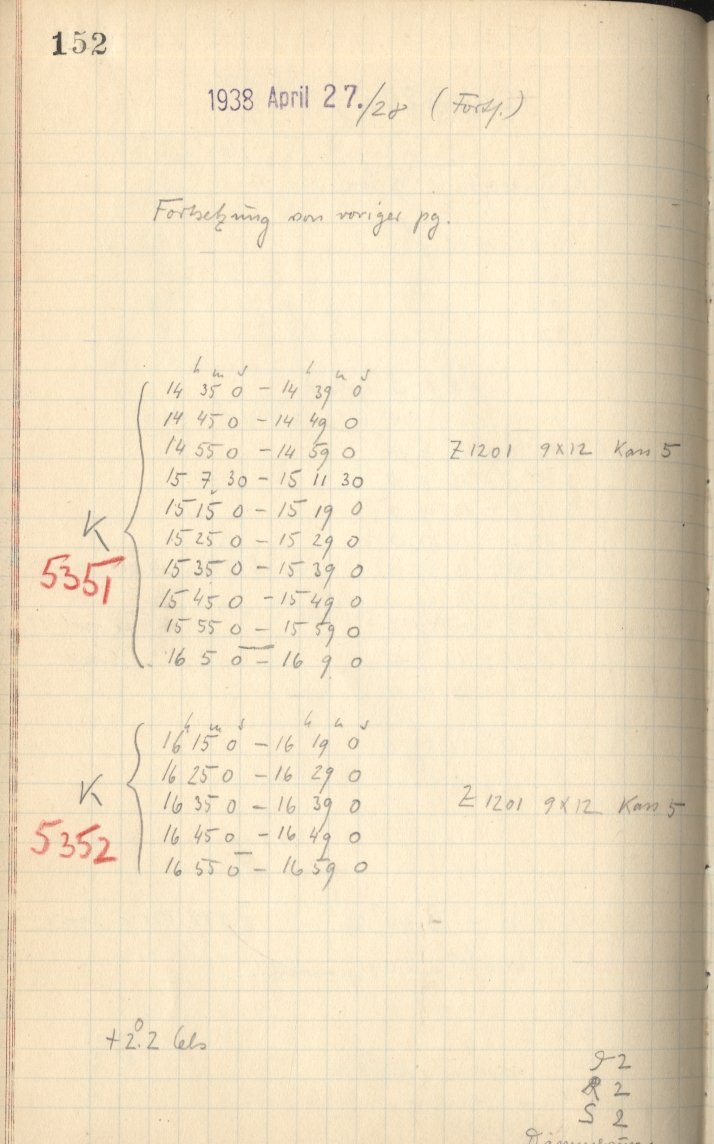 152
1938 April 27./28 (Forts.)
Fortsetzung von voriger pg.
h m s h m s
14 35 0 – 14 39 0
14 45 0 – 14 49 0
14 55 0 – 14 59 0 Z 1201 9x12 Kass 5
15 7 30 – 15 11 30
15 15 0 – 15 19 0
K 15 25 0 – 15 29 0
5351 15 35 0 – 15 39 0
15 45 0 – 15 49 0
15 55 0 – 15 59 0
16 5 0 – 16 9 0
h m s h m s
16 15 0 – 16 19 0
16 25 0 – 16 29 0
K 16 35 0 – 16 39 0 Z 1201 9x12 Kass 5
5352 16 45 0 – 16 49 0
16 55 0 – 16 59 0
+2°.2 Cels
2
R 2
S 2